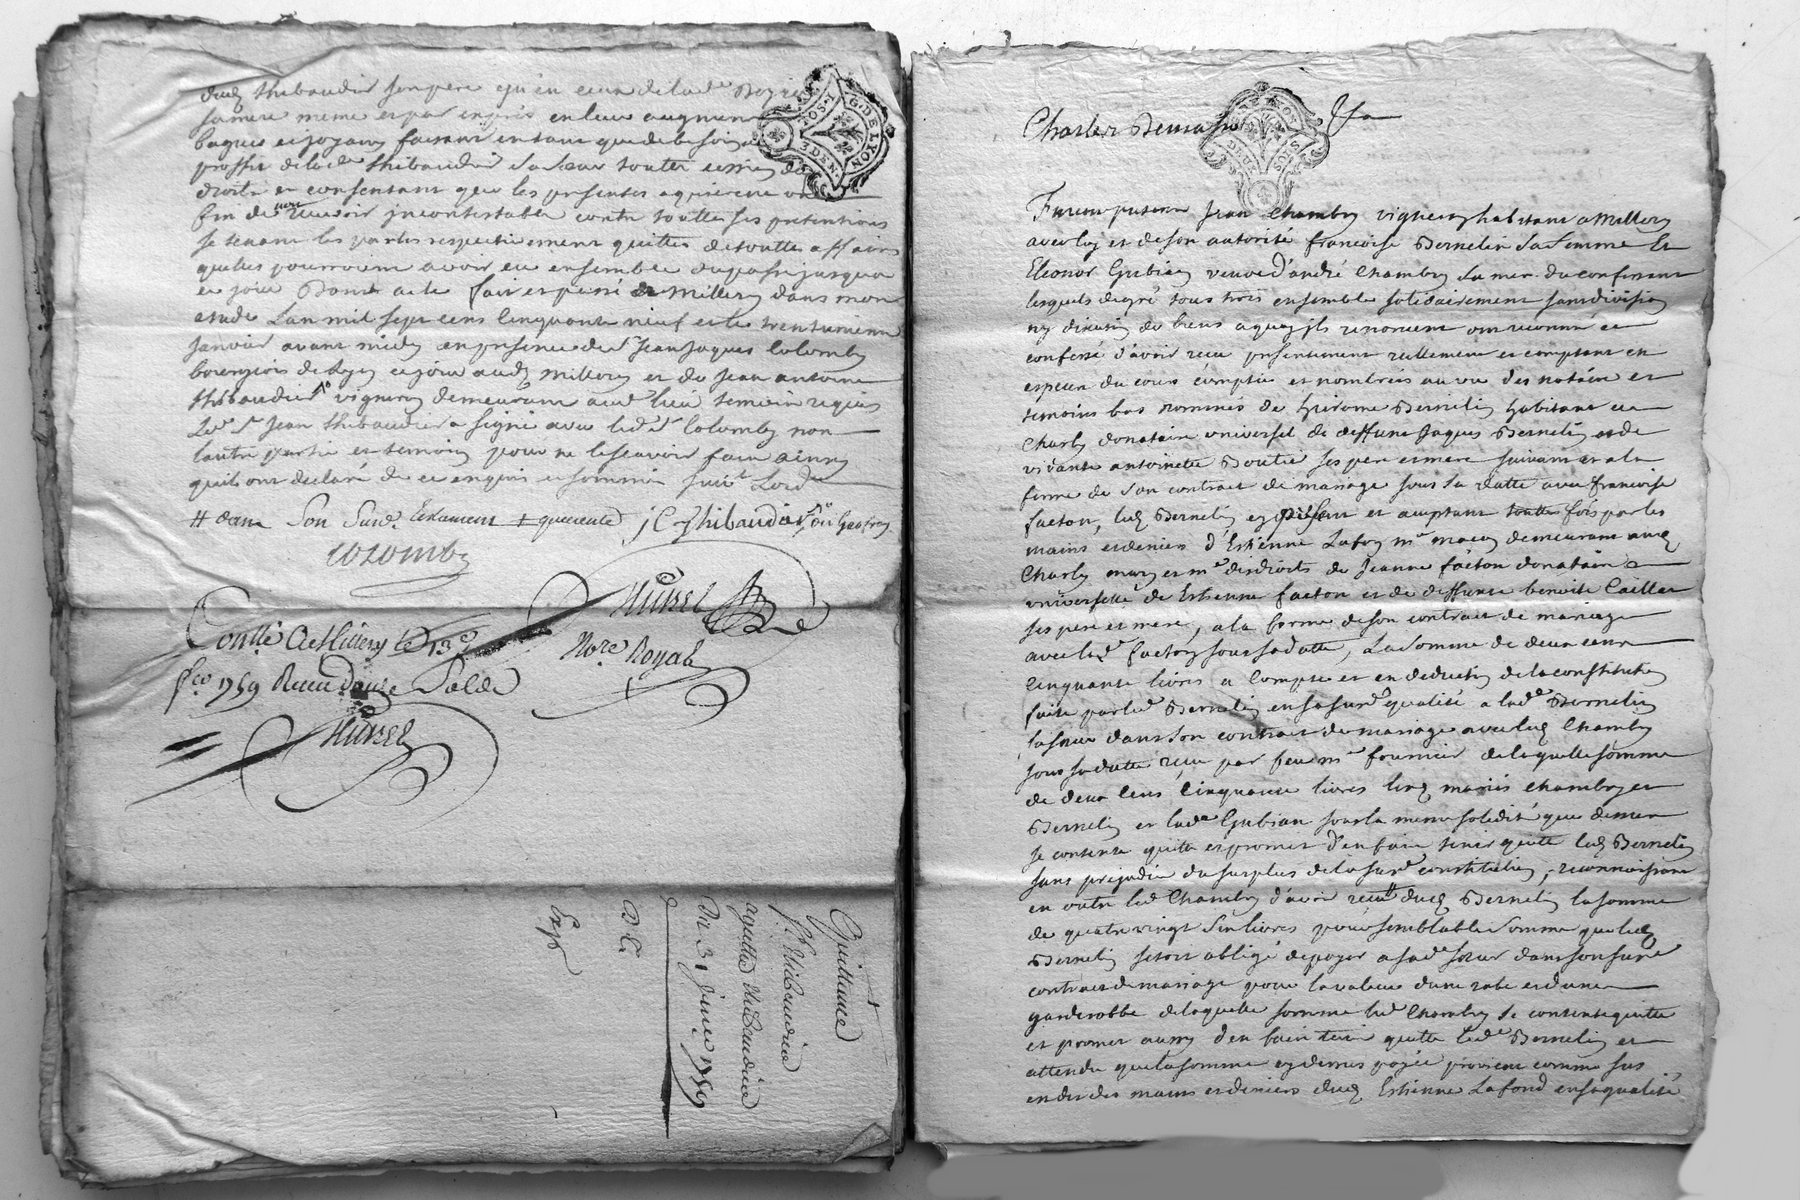 dud Thibaudier son pere qu'en ceux de lad.e Boyrie
sa mere meme et par exprés en leur augment
bagues et joyaux faisant en tant que de besoin au
proffit de lad.e Thibaudier sa sœur toutes cessions de
droits et consentant que les presentes aquierent
fin de recevoir incontestable contre touttes ses pretentions
se tenant les parties respectivement quittes de toutte affaires
quelles pourroient avoir eu ensemble du passé jusqua
ce jour Dont acte fait et passé a Millery dans mon
etude Lan mil sept cens Cinquante neuf et le trentunieme
janvier avant midy en presence de S.r Jean Jaques Colomby
bourgeois de Lyon ce jour aud. Millery et de Jean antoine
thibaudier vigneron demeurant aud. lieu temoin requis
Led. S.r Jean thibaudier a signé avec led. S.r Colomby non
lautre partie et temoin pour ne le scavoir faire ainsy
quils ont declaré de ce enquis et sommés suiv.t Lord.ce
# dans son susd. testament + j C thibaudier
colomby
Hurel
Cont.lé a Millery le 13.e
No.re Royal
f.co 1759 Receu Douze sols
Hurel
Quittance
J. Thibaudier
a thibaudier
Du 31 janv. 1759
Exp
Charles
Furent presens Jean Chambry vigneron habitant a Millery
avec luy et de son autorité francoise Bernelin sa femme Et
Eleonor Gubian veuve d'andré Chambry sa mere du confessant
lesquels de gré tous trois ensemble solidairement sans division
ny discution de biens a quoy ils renoncent ont reconnu et
confessé d'avoir recu presentement reellement et comptant en
especes du cours comptées et nombrées au vu des notaire et
temoins bas nommés de hierome Bernelin habitant a
Charly donataire universel de deffunt Jaques Bernelin et de
vivante antoinette Boutié ses pere et mere suivant et a la
forme de son contract de mariage sous sa datte avec francoise
facton, led. Bernelin cy present et acceptant touttes fois par les
mains et deniers d'Estienne Lafoy m.e macon demeurant aud.
Charly mary et m.e des droits de Jeanne facton donataire
universelle de Estienne facton et de deffunte benoite Caillat
ses pere et mere, a la forme de son contract de mariage
avec lad. facton sous sa datte, La somme de deux cens
Cinquante livres a Compte et en deduction de la constitution
faite par led. Bernelin en sa susd. qualité a lad.e Bernelin
sa sœur dans son contract de mariage avec led. Chambry
sous sa datte recu par feu m.e fournier de laquelle somme
de deux Cens Cinquante livres lesd. mariés chambry et
Bernelin et lad.e Gubian sous la meme solidité que dessus
se contente quitte et promet d'en faire tenir quitte led. Bernelin
sans prejudice du surplus de la susd. constitution; reconnoissant
en outre led. Chambry d'avoir recu dud. Bernelin la somme
de quatre vingt six livres pour semblable somme que led.
Bernelin setoit obligé de payer a sad.e sœur dans son susd.
contract de mariage pour la valeur dune robe et dune
garderobbe de laquelle somme led. Chambry se contente quitte
et promet aussy d'en faire tenir quitte led. Bernelin et
attendu que la somme cy dessus payée provient comme sus
est dit des mains et deniers dud. Estienne Lafond en sa qualité